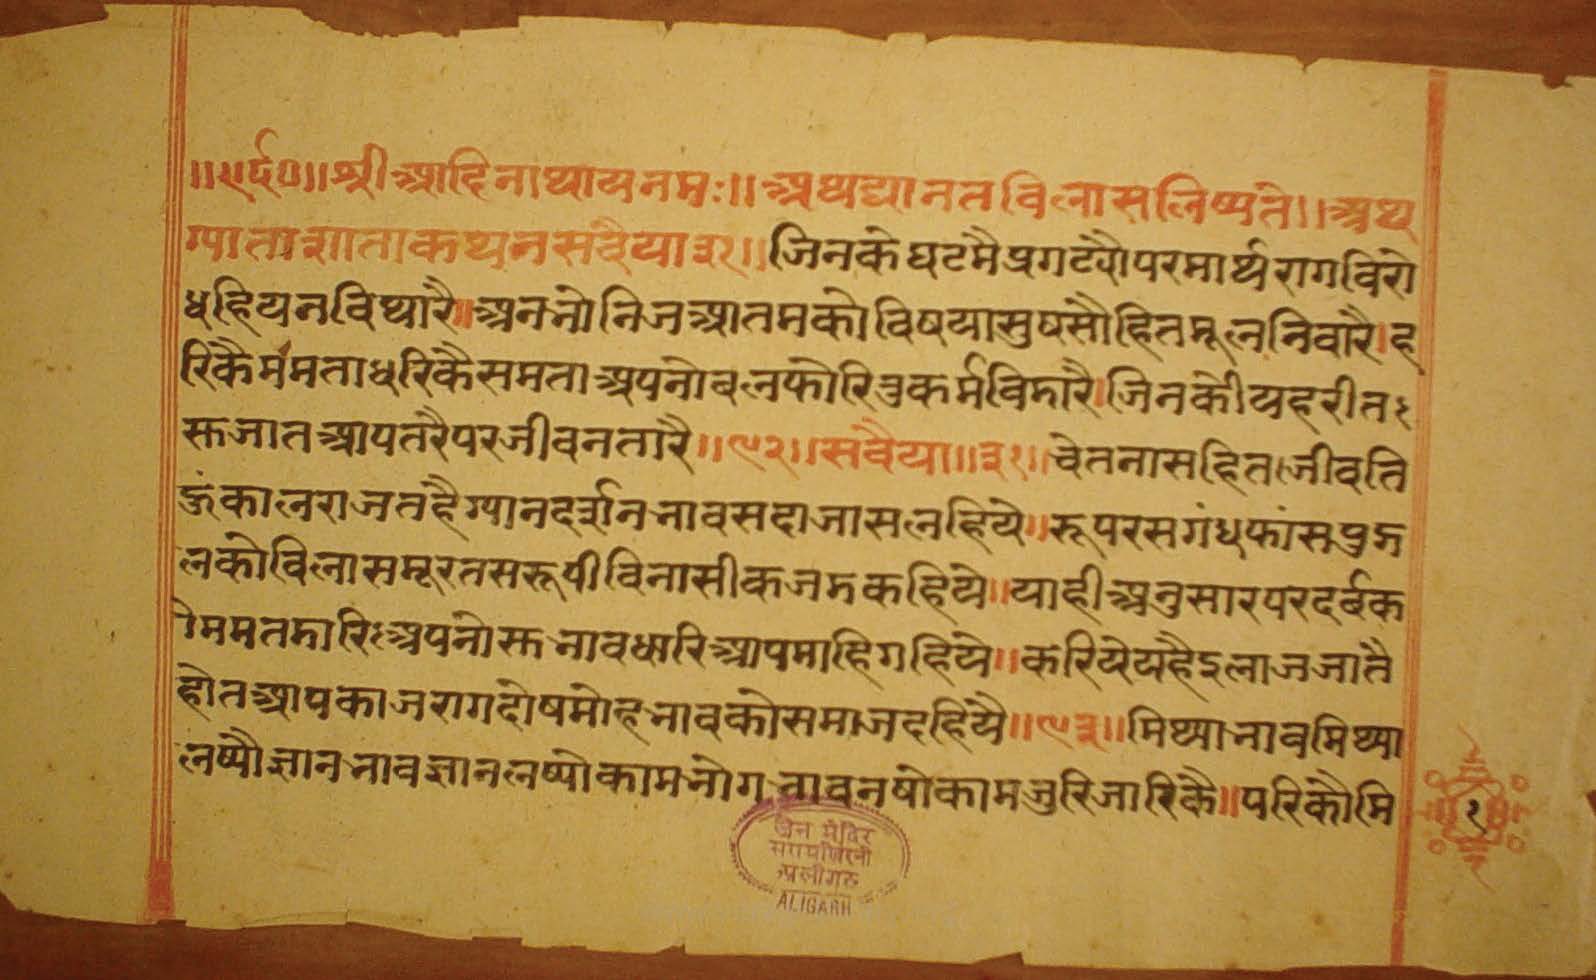 ॥एर्द०॥श्रीआदिनाथायनमः॥अथद्यानतविलासलिष्यते॥अथ
ग्याताज्ञाताकथनसवैया३१॥जिनकेघटमैप्रगट्यौपरमार्थरागविरो
धहियनविथारै॥अनभोनिजआतमकोविषयासुषसौहितमूलनिवारै।ह
रिकैममताधरिकैसमताअपनोबलफोरिजुकर्मविदारै।जिनकीयहरीत
स्तजातआपतरैपरजीवनतारै॥९२॥सवैया॥३१॥चेतनासहितजीवति
हूंकालराजतहैग्यानदर्शनभावसदाजासलहिये॥रूपरसगंधफांसपुद्ग
लकोविलासमूरतसरूपीविनासीकजडकहिये॥याहीअनुसारपरदर्बक
ोममतडारिअपनोस्वभावधारिआपमाहिगहिये॥करियेयहैइलाजजातै
होतआपकाजरागदोषमोहभावकोसमाजदहियै॥९३॥मिथ्याभावमिथ्या
लष्यौज्ञानभावज्ञानलष्योकामभोगभावनषोकामजुरिजारिकै॥परिकौमि
१
जैन मंदिर
अलीगढ
ALIGARH